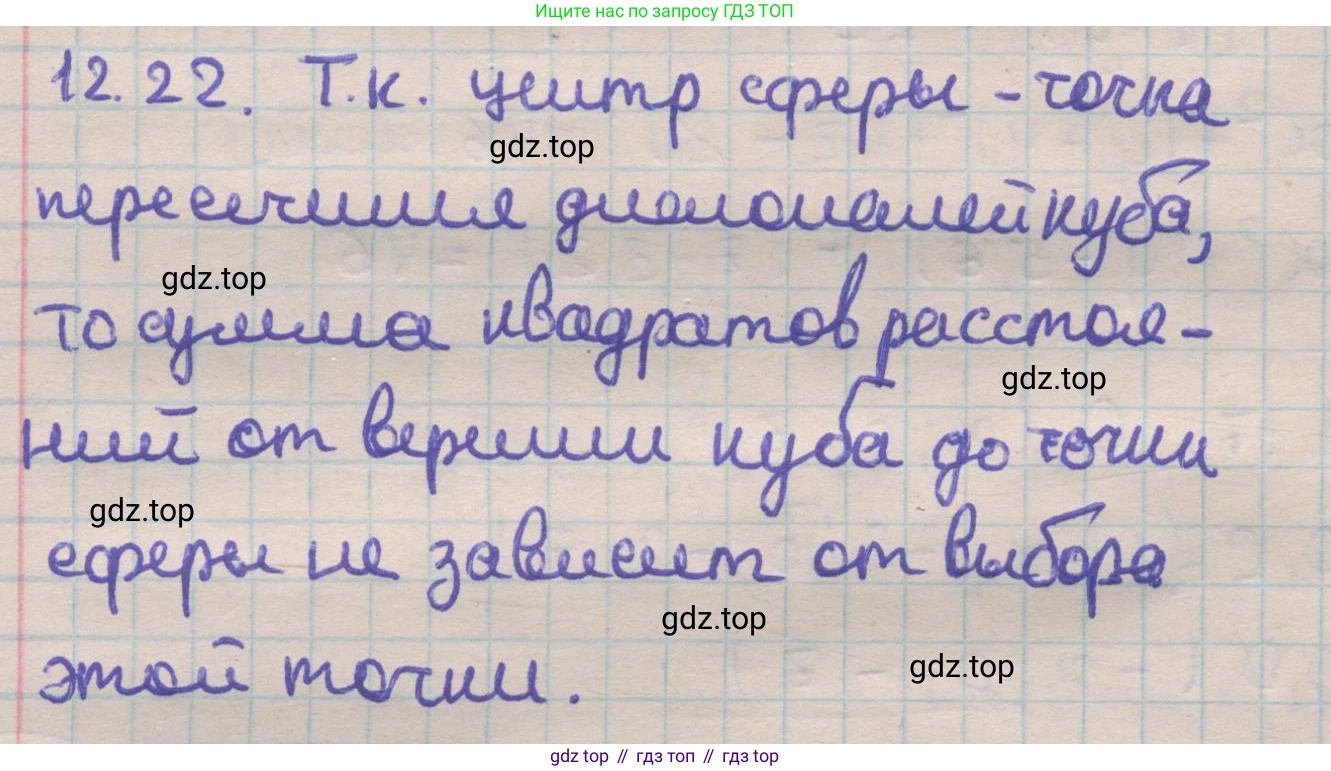 Ищите нас по запросу ГДЗ ТОП
12.22. Т.к. центр сферы - точка
gdz.top
пересечения диагоналей куба,
gdz.top
то сумма квадратов расстоя-
gdz.top
ний от вершин куба до точки
gdz.top
сферы не зависит от выбора
gdz.top
этой точки.
gdz.top
gdz top // гдз топ // гдз top